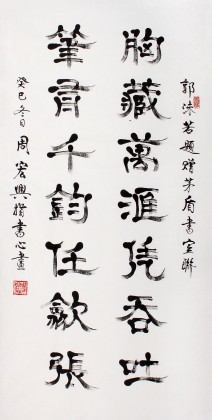 郭沫若題贈茅盾書室聯
胸藏萬滙凭吞吐
筆有千鈞任歙張
癸巳冬日周宏興指書心畫